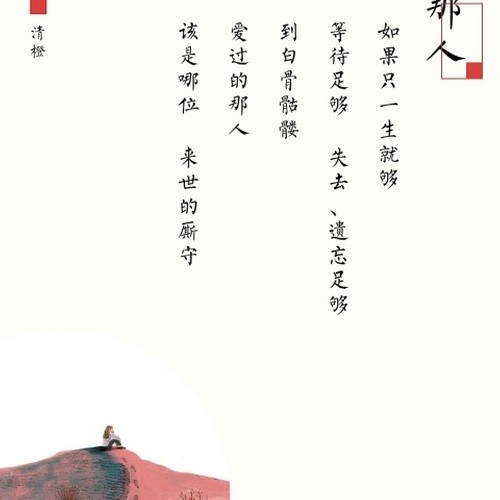 那人
如果只一生就够
等待足够 失去、遗忘足够
到白骨骷髅
爱过的那人
该是哪位 来世的厮守
清橙